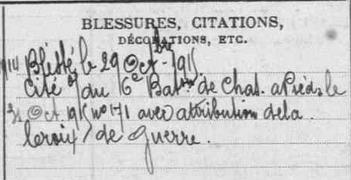 BLESSURES, CITATIONS,
DÉCORATIONS, ETC.
Blessé le 29 Oct bre 1915
cité / du 6e Bat. de Chas. à Pied, le
31 Oct. 1915 no 171 avec attribution de la
Croix de Guerre.